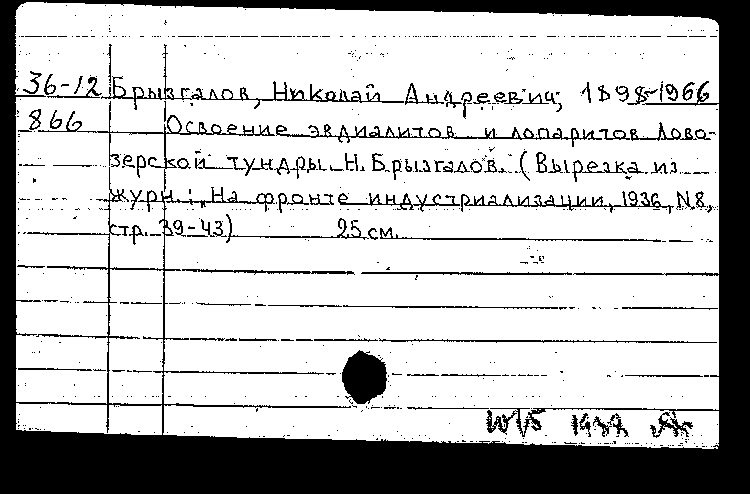 36-12 Брызгалов, Николай Андреевич, 1898-1966
866 Освоение эвдиалитов и лопаритов Лово-
зерской тундры. Н. Брызгалов. (Вырезка из
журн.: "На фронте индустриализации, 1936, N8,
стр. 39-43) 25 см.